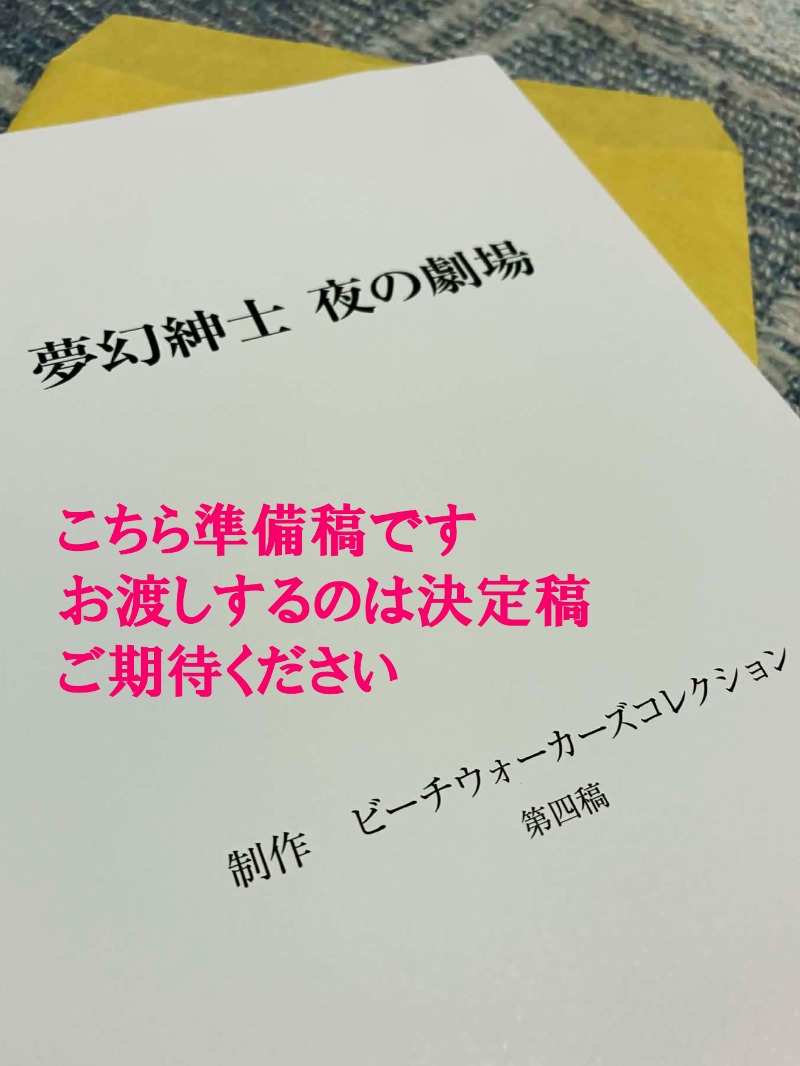 夢幻紳士 夜の劇場
こちら準備稿です
お渡しするのは決定稿
ご期待ください
制作 ビーチウォーカーズコレクション
第四稿